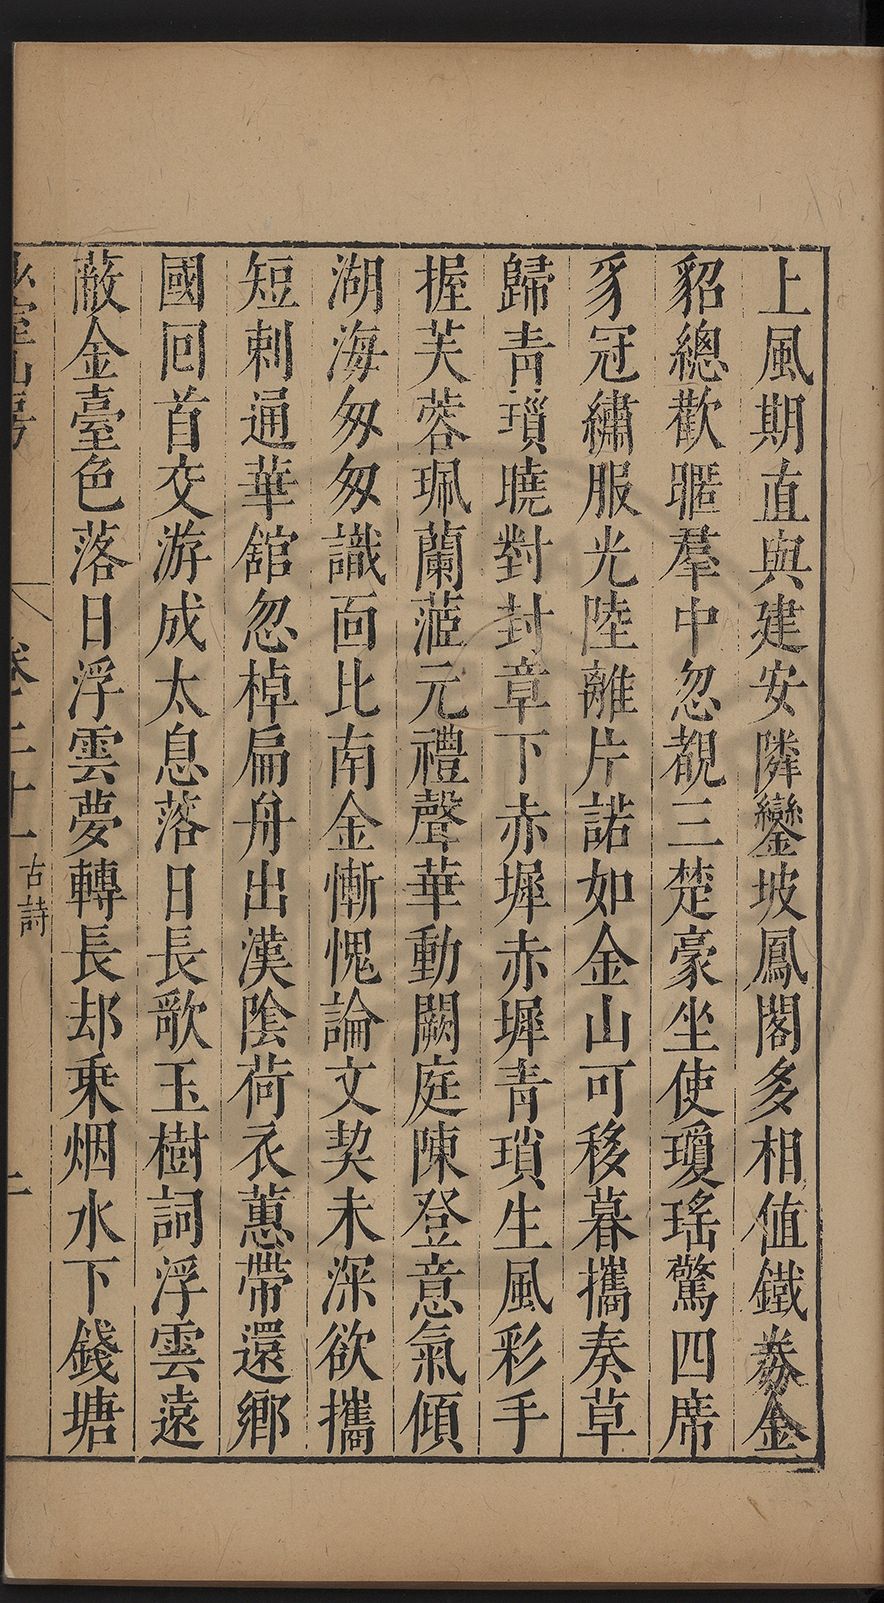 上風期直與建安隣鑾坡鳳閣多相值鐵券金
貂總歡暱羣中忽覩三楚豪坐使瓊瑤驚四席
豸冠繡服光陸離片諾如金山可移暮攜奏草
歸青瑣曉對封章下赤墀赤墀青瑣生風彩手
握芙蓉珮蘭茝元禮聲華動闕庭陳登意氣傾
湖海匆匆識面比南金慚愧論文契未深欲攜
短刺通華舘忽棹扁舟出漢陰荷衣蕙帶還鄉
國回首交游成太息落日長歌玉樹詞浮雲遠
蔽金臺色落日浮雲夢轉長却乗烟水下錢塘
卷二十一
古詩